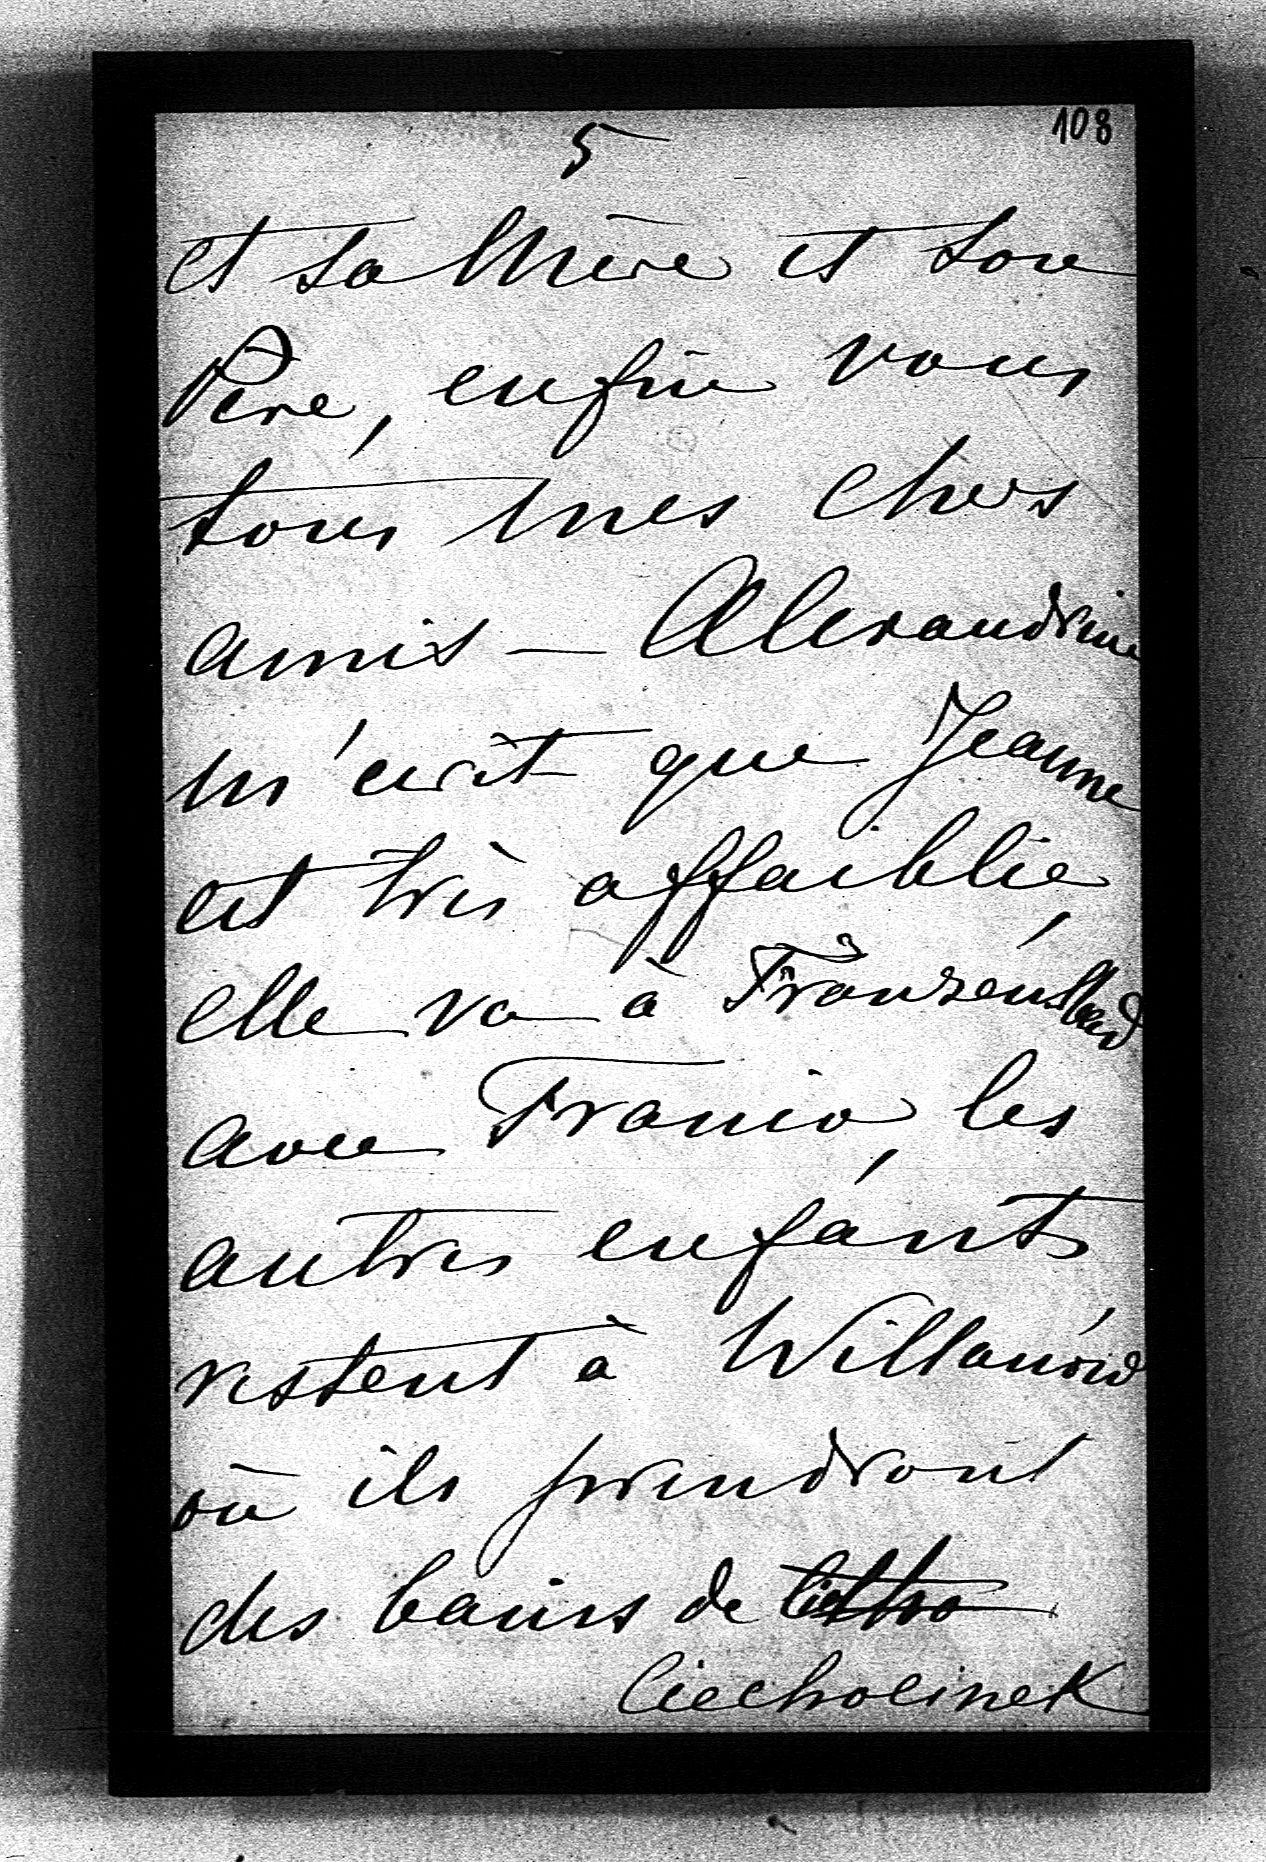 108
5
et sa Mère et son
Père, enfin vous
tous mes chers
amis — Alexandrine
m'écrit que Jeanne
est très affaiblie,
elle va à Franzensbad
avec Franio, les
autres enfants
restent à Willanów
où ils prendront
des bains de
Ciechocinek